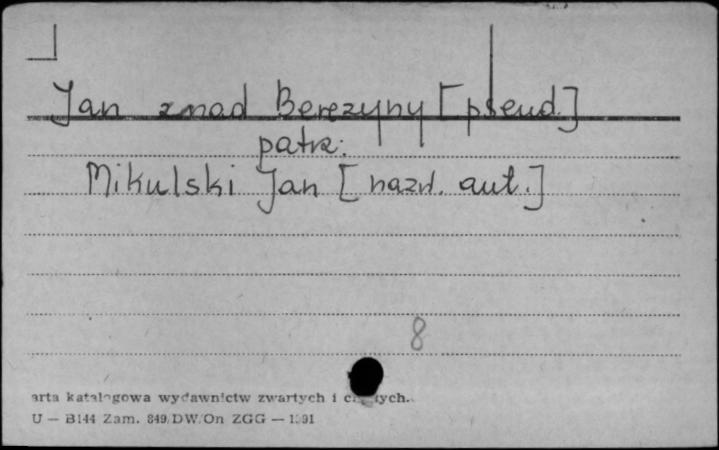 Jan znad Berezyny [pseud.]
patrz:
Mikulski Jan [nazw. aut.]
8
arta katalogowa wydawnictw zwartych i
U — B144 Zam. 849/DW/On ZGG —